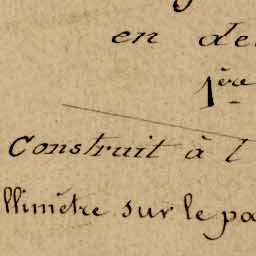 en de
1ère
Construit à l
llimètre sur le pa